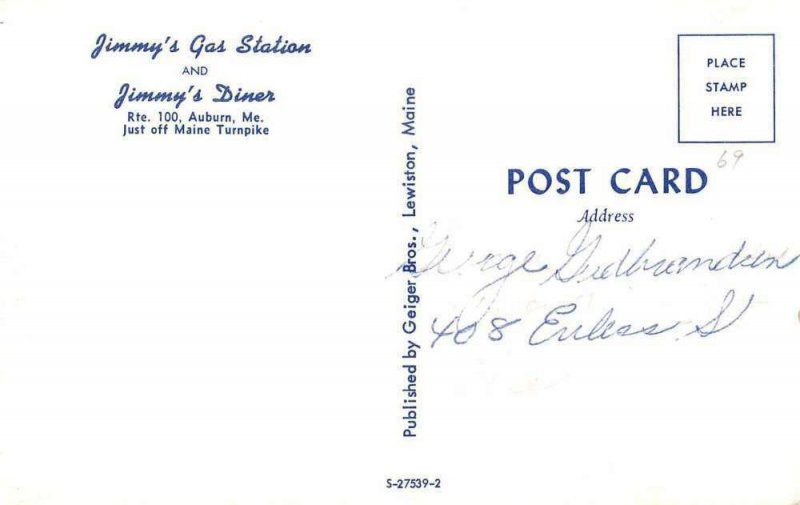 Jimmy's Gas Station
AND
Jimmy's Diner
Rte. 100, Auburn, Me.
Just off Maine Turnpike
Published by Geiger Bros., Lewiston, Maine
PLACE
STAMP
HERE
69
POST CARD
Address
George Gudbrandsen
408 Euless S
S-27539-2